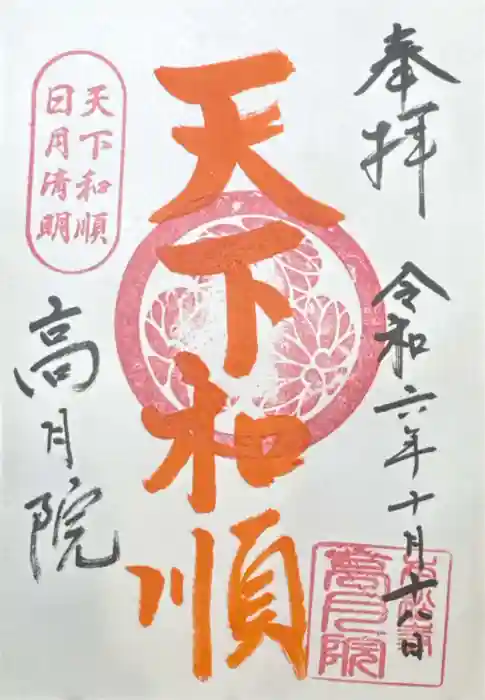 奉拝
令和六年十月十八日
天下和順
天下和順
日月清明
高月院
高月院